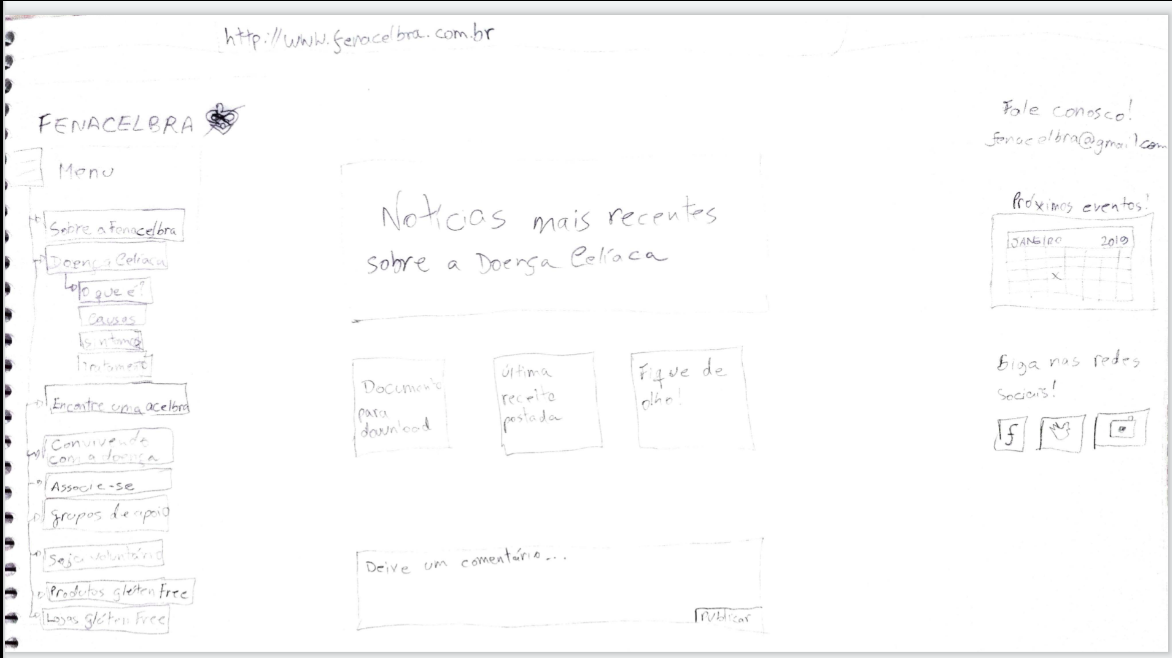 http://www.fenacelbra.com.br
FENACELBRA
Menu
Sobre a Fenacelbra
Doença Celíaca
O que é?
Causas
Sintomas
Encontre uma acelbra
Convivendo
com a doença
Associe-se
grupos de apoio
Seja voluntário
Produtos glúten Free
Lojas glúten Free
Notícias mais recentes
sobre a Doença Celíaca
Documento
para
download
última
receita
postada
Fique de
olho!
Deixe um comentário...
Publicar
Fale conosco!
fenacelbra@gmail.com
Próximos eventos!
JANEIRO 2019
x
Siga nas redes
sociais!
f